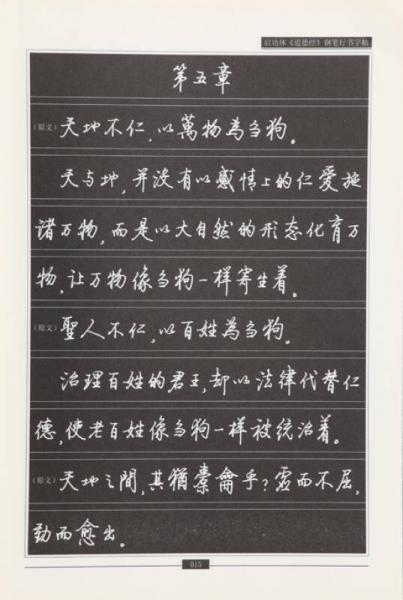 启功体《道德经》钢笔行书字帖
第五章
（原文）天地不仁，以萬物為刍狗。
天与地，并没有以感情上的仁爱施
诸万物，而是以大自然的形态化育万
物，让万物像刍狗一样寄生着。
（原文）聖人不仁，以百姓為刍狗。
治理百姓的君王，却以法律代替仁
德，使老百姓像刍狗一样被统治着。
（原文）天地之間，其猶橐龠乎？虚而不屈，
动而愈出。
015